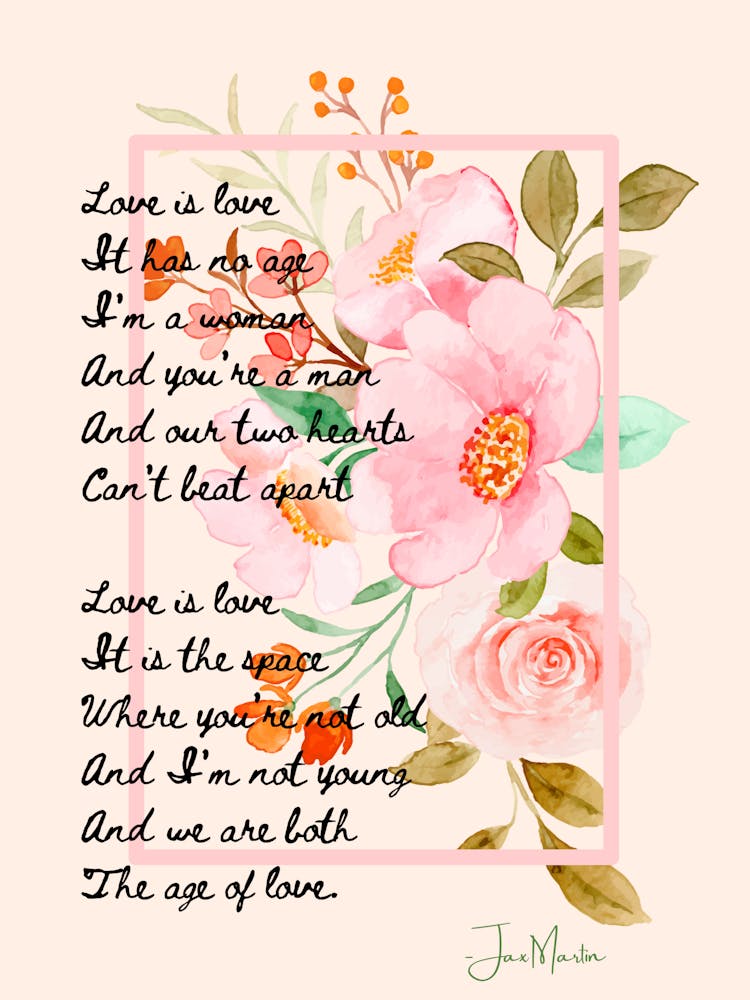 Love is love
It has no age
I'm a woman
And you're a man
And our two hearts
Can't beat apart

Love is love
It is the space
Where you're not old
And I'm not young
And we are both
The age of love.
-Jax Martin